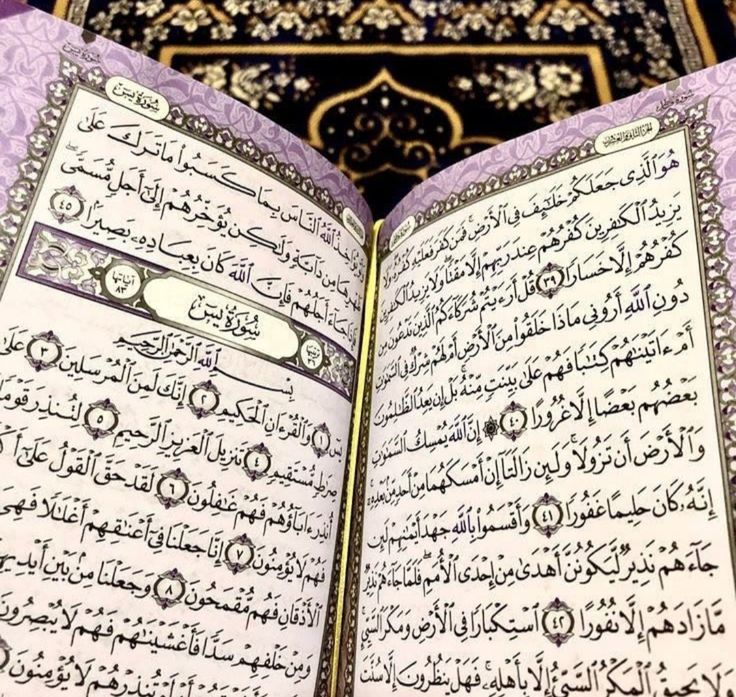 سورة فاطر
الجزء الثاني والعشرون
هُوَ ٱلَّذِى جَعَلَكُمْ خَلَٰٓئِفَ فِى ٱلْأَرْضِ ۚ فَمَن كَفَرَ فَعَلَيْهِ كُفْرُهُۥ ۖ وَلَا
يَزِيدُ ٱلْكَٰفِرِينَ كُفْرُهُمْ عِندَ رَبِّهِمْ إِلَّا مَقْتًا ۖ وَلَا يَزِيدُ ٱلْكَٰفِرِينَ
كُفْرُهُمْ إِلَّا خَسَارًا ٣٩ قُلْ أَرَءَيْتُمْ شُرَكَآءَكُمُ ٱلَّذِينَ تَدْعُونَ مِن
دُونِ ٱللَّهِ أَرُونِى مَاذَا خَلَقُوا۟ مِنَ ٱلْأَرْضِ أَمْ لَهُمْ شِرْكٌ فِى ٱلسَّمَٰوَٰتِ
أَمْ ءَاتَيْنَٰهُمْ كِتَٰبًا فَهُمْ عَلَىٰ بَيِّنَتٍ مِّنْهُ ۚ بَلْ إِن يَعِدُ ٱلظَّٰلِمُونَ
بَعْضُهُم بَعْضًا إِلَّا غُرُورًا ٤٠ ۞ إِنَّ ٱللَّهَ يُمْسِكُ ٱلسَّمَٰوَٰتِ
وَٱلْأَرْضَ أَن تَزُولَا ۚ وَلَئِن زَالَتَآ إِنْ أَمْسَكَهُمَا مِنْ أَحَدٍ مِّنۢ بَعْدِهِۦٓ ۚ
إِنَّهُۥ كَانَ حَلِيمًا غَفُورًا ٤١ وَأَقْسَمُوا۟ بِٱللَّهِ جَهْدَ أَيْمَٰنِهِمْ لَئِن
جَآءَهُمْ نَذِيرٌ لَّيَكُونُنَّ أَهْدَىٰ مِنْ إِحْدَى ٱلْأُمَمِ ۖ فَلَمَّا جَآءَهُمْ نَذِيرٌ
مَّا زَادَهُمْ إِلَّا نُفُورًا ٤٢ ٱسْتِكْبَارًا فِى ٱلْأَرْضِ وَمَكْرَ ٱلسَّيِّئِ ۚ
وَلَا يَحِيقُ ٱلْمَكْرُ ٱلسَّيِّئُ إِلَّا بِأَهْلِهِۦ ۚ فَهَلْ يَنظُرُونَ إِلَّا سُنَّتَ
سورة يس
سورة يس
ٱللَّهُ ٱلنَّاسَ بِمَا كَسَبُوا۟ مَا تَرَكَ عَلَىٰ
مِن دَآبَّةٍ وَلَٰكِن يُؤَخِّرُهُمْ إِلَىٰٓ أَجَلٍ مُّسَمًّى ۖ
جَآءَ أَجَلُهُمْ فَإِنَّ ٱللَّهَ كَانَ بِعِبَادِهِۦ بَصِيرًۢا ٤٥
سُورَةُ يسٓ
آياتها ٨٣
بِسْمِ ٱللَّهِ ٱلرَّحْمَٰنِ ٱلرَّحِيمِ
يسٓ ١ وَٱلْقُرْءَانِ ٱلْحَكِيمِ ٢ إِنَّكَ لَمِنَ ٱلْمُرْسَلِينَ ٣ عَلَىٰ
صِرَٰطٍ مُّسْتَقِيمٍ ٤ تَنزِيلَ ٱلْعَزِيزِ ٱلرَّحِيمِ ٥ لِتُنذِرَ قَوْمًا
أُنذِرَ ءَابَآؤُهُمْ فَهُمْ غَٰفِلُونَ ٦ لَقَدْ حَقَّ ٱلْقَوْلُ عَلَىٰٓ
فَهُمْ لَا يُؤْمِنُونَ ٧ إِنَّا جَعَلْنَا فِىٓ أَعْنَٰقِهِمْ أَغْلَٰلًا فَهِىَ
ٱلْأَذْقَانِ فَهُم مُّقْمَحُونَ ٨ وَجَعَلْنَا مِنۢ بَيْنِ أَيْدِيهِمْ
وَمِنْ خَلْفِهِمْ سَدًّا فَأَغْشَيْنَٰهُمْ فَهُمْ لَا يُبْصِرُونَ
تُنذِرْهُمْ لَا يُؤْمِنُونَ